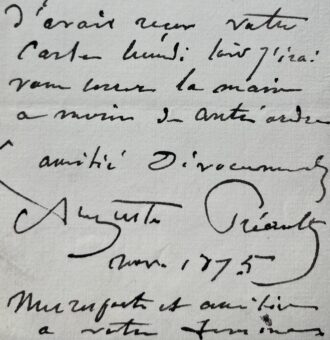 j'avais reçu votre
carte lundi soir j'irai
vous serrer la main
a moins de contre ordre
amitié Dévouement
Auguste Préault
nov. 1875
Mes respects et amitiés
a votre